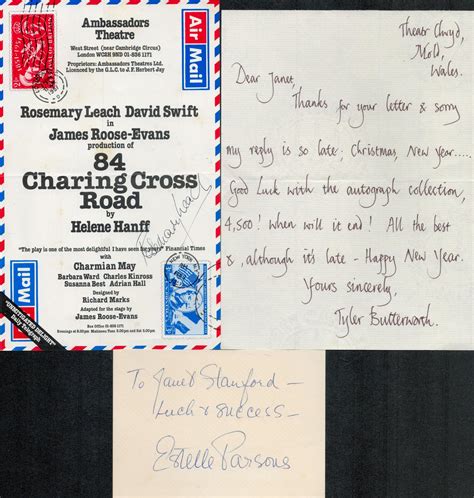 Ambassadors
Theatre
West Street (near Cambridge Circus)
London WC2H 9ND 01-836 1171
Proprietors: Ambassadors Theatres Ltd.
Licenced by the G.L.C. to J.F. Herbert Jay
Air Mail
Rosemary Leach David Swift
in
James Roose-Evans
production of
84
Charing Cross
Road
by
Helene Hanff
"The play is one of the most delightful I have seen for years" Financial Times
with
Charmian May
Barbara Ward Charles Kinross
Susanna Best Adrian Hall
Designed by
Richard Marks
Adapted for the stage by
James Roose-Evans
Box Office 01-836 1171
Air Mail
"UNMITIGATED DELIGHT"
Daily Telegraph
Theatr Clwyd,
Mold,
Wales.
Dear Janet,
Thanks for your letter & sorry
my reply is so late. Christmas, New Year.....
Good Luck with the autograph collection,
4,500! When will it end! All the best
&, although its late - Happy New Year.
Yours sincerely,
Tyler Butterworth.
To Janet Stanford -
Luck & success -
Estelle Parsons